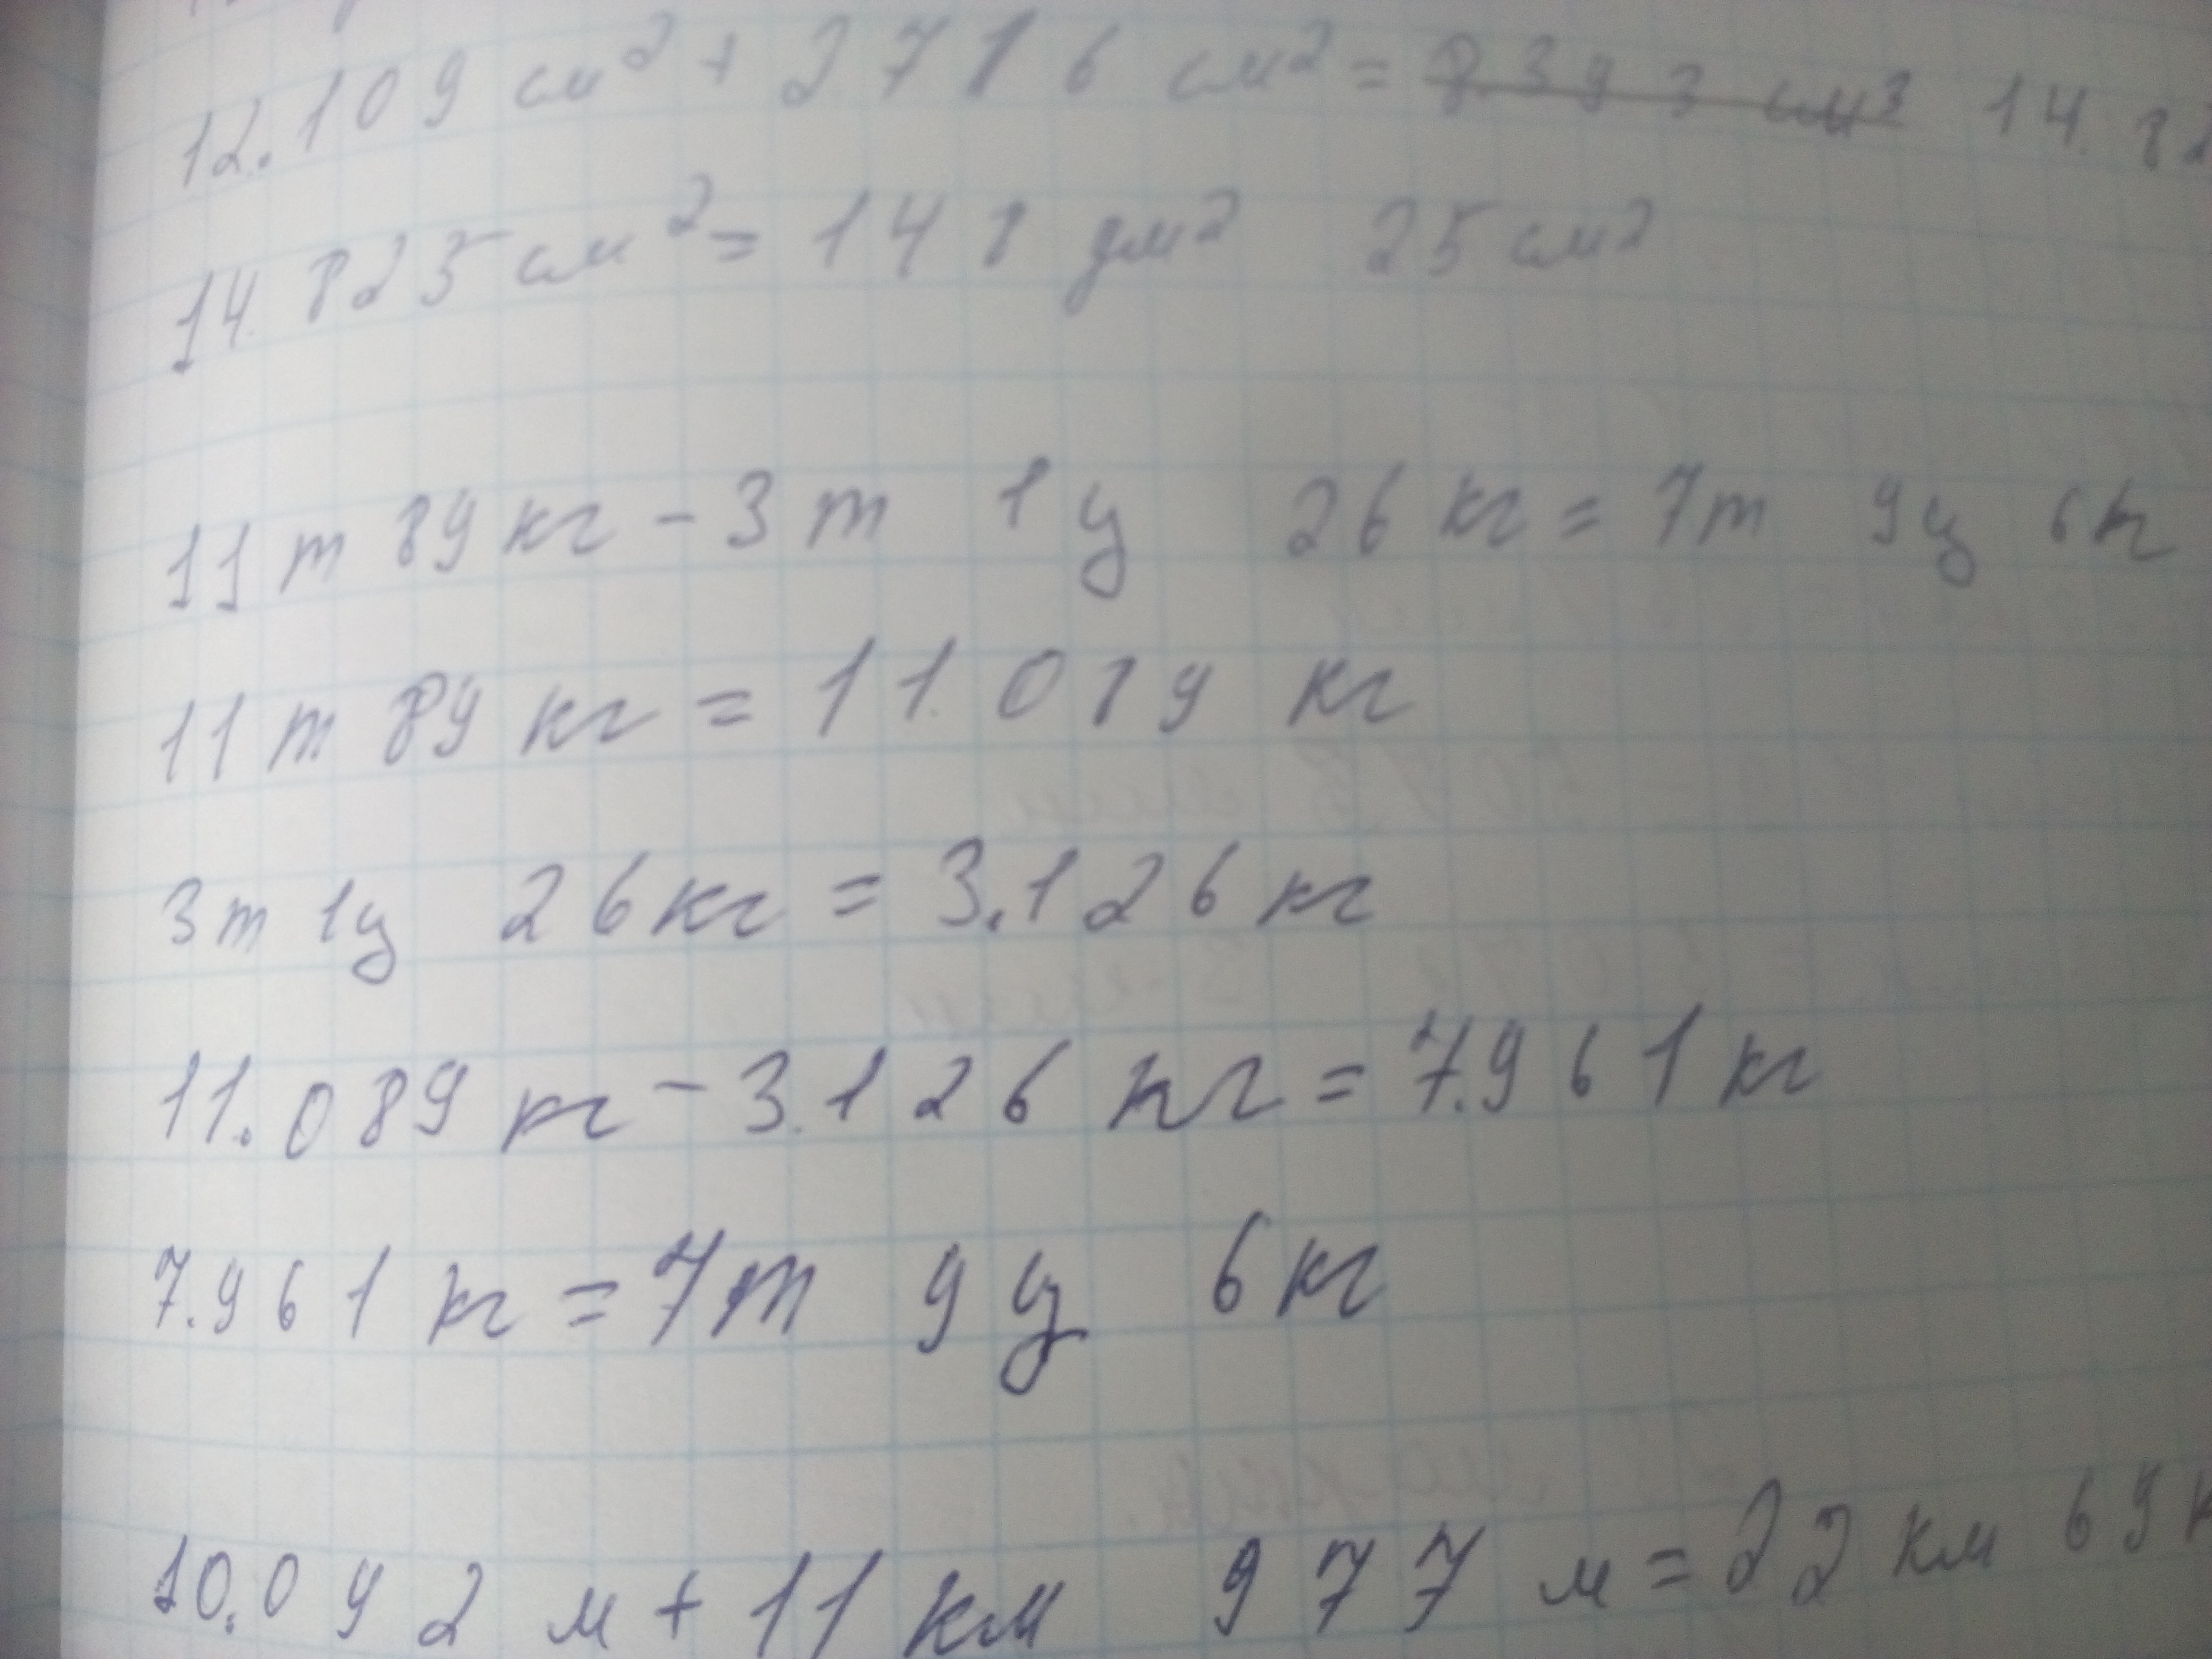 12.109 см² + 2716 см² = 8.393 см² 14.82
14.825 см² = 148 дм² 25 см²
11 т 89 кг - 3 т 1 ц 26 кг = 7 т 9 ц 6 кг
11 т 89 кг = 11.089 кг
3 т 1 ц 26 кг = 3.126 кг
11.089 кг - 3.126 кг = 7.961 кг
7.961 кг = 7 т 9 ц 6 кг
10.092 м + 11 км 977 м = 22 км 69